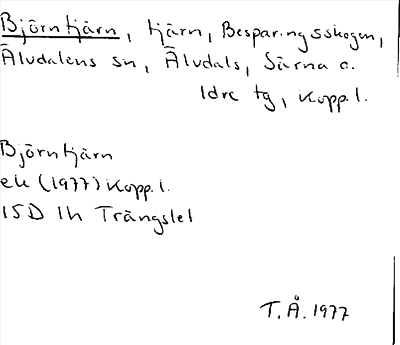 Björntjärn, tjärn, Besparingsskogen,
Älvdalens sn, Älvdals, Särna o.
Idre tg, Kopp.l.
Björntjärn
ek (1977) Kopp.l.
15D 1h Trängslet
T.Å. 1977